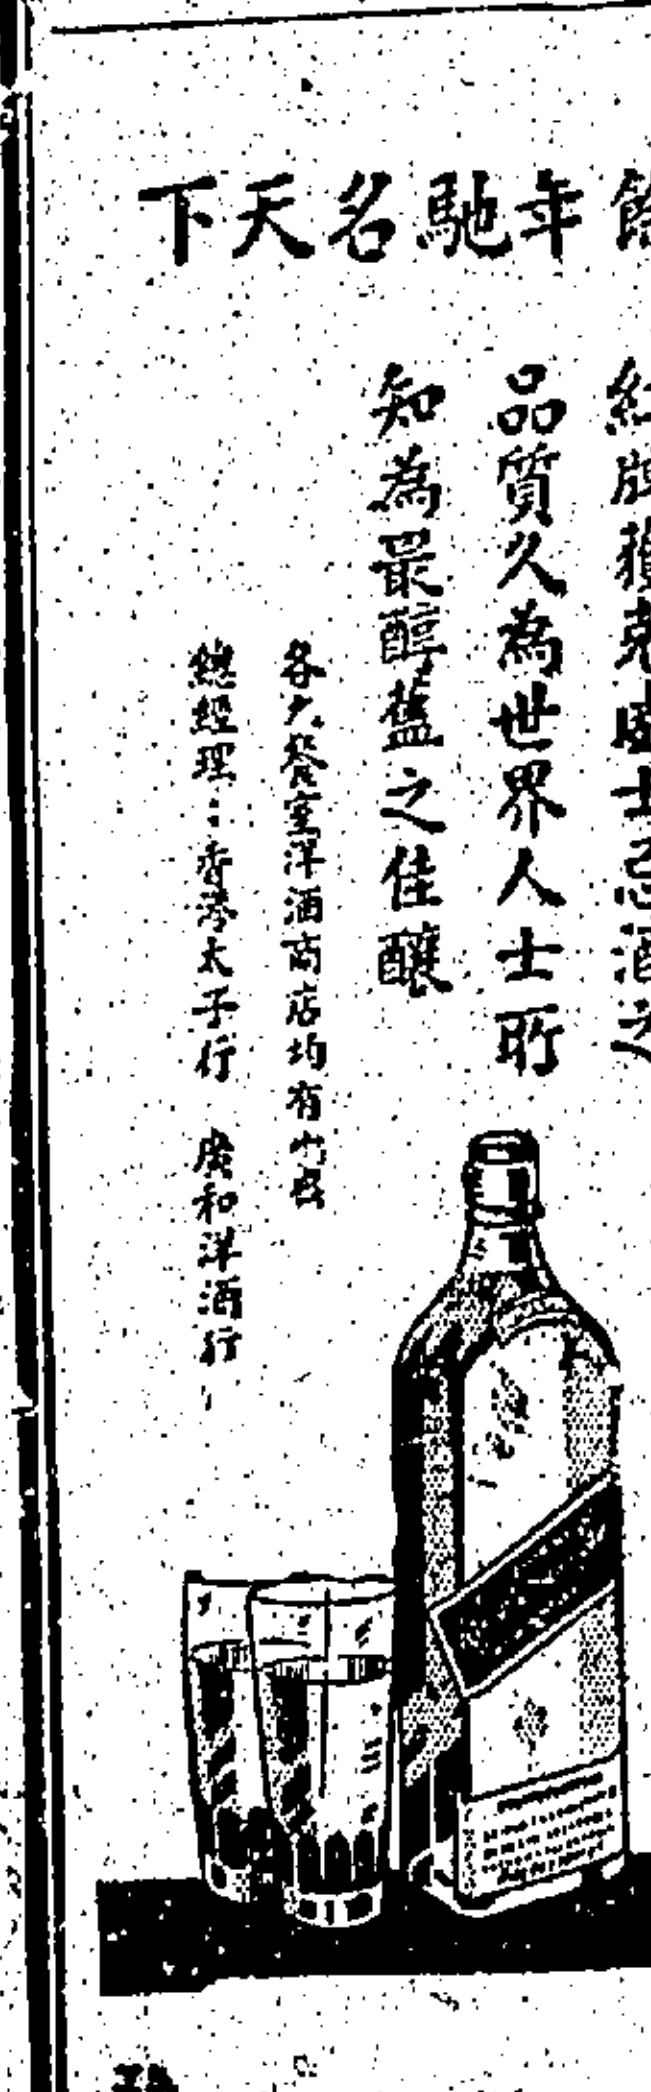 年馳名天下
紅牌獲克嘜士忌酒之
品質久為世界人士所
知為最醇舊之佳釀
各大餐室洋酒商店均有代售
總經理：香港太子行　廣和洋酒行